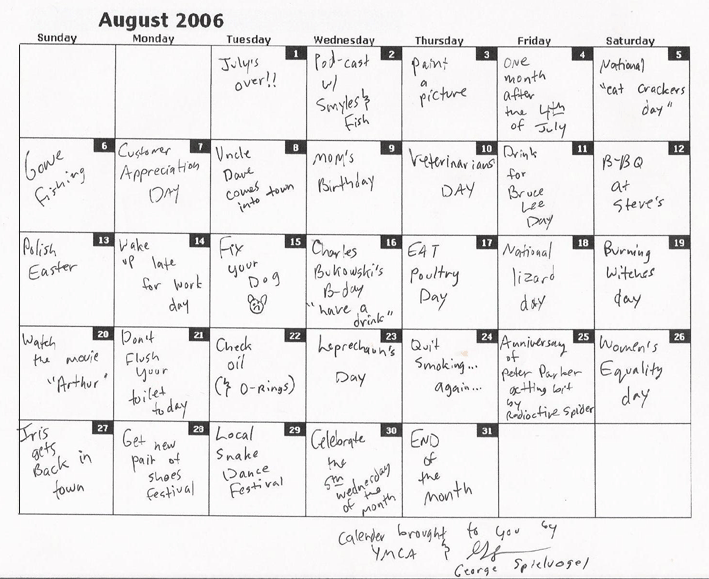 August 2006
Sunday Monday Tuesday Wednesday Thursday Friday Saturday
1
July's
over!!
2
Pod-cast
w/
Smyles &
Fish
3
Paint
a
picture
4
One
month
after
the 4th
of July
5
National
"eat crackers
day"
6
Gone
Fishing
7
Customer
Appreciation
DAY
8
Uncle
Dave
comes
into town
9
Mom's
Birthday
10
Veterinarians
DAY
11
Drink
for
Bruce
Lee
Day
12
B-BQ
at
Steve's
13
Polish
Easter
14
Wake
up late
for work
day
15
Fix
your
Dog
16
Charles
Bukowski's
B-day
"have a
drink"
17
EAT
Poultry
Day
18
National
lizard
day
19
Burning
Witches
day
20
Watch
the movie
"Arthur"
21
Don't
Flush
your
toilet
today
22
Check
oil
(& O-Rings)
23
Leprechaun's
Day
24
Quit
Smoking...
again...
25
Anniversary
of
Peter Parker
getting bit
by
Radioctive Spider
26
Women's
Equality
day
27
Iris
gets
Back in
town
28
Get new
pair of
shoes
Festival
29
Local
Snake
Dance
Festival
30
Celebrate
the
5th
wednesday
of the
month
31
END
of
the
month
Calender brought to you by
YMCA &
George Spielvogel